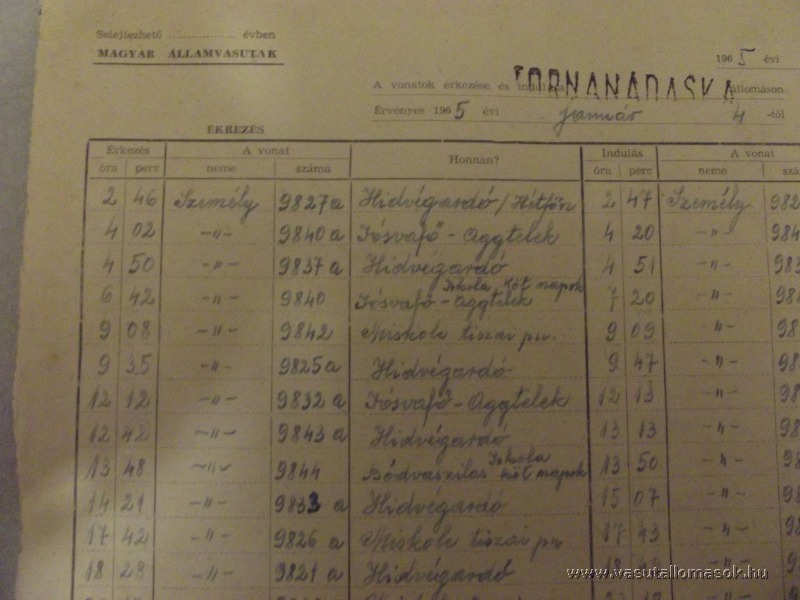 Selejtezhető .................. évben
MAGYAR ÁLLAMVASUTAK
1965 évi
A vonatok érkezése és indulása TORNANADASKA állomáson
Érvényes 1965 évi január 4 -től
ÉRKEZÉS
Érkezés A vonat Honnan? Indulás A vonat
óra perc neme száma óra perc neme
2 46 Személy 9827a Hidvégardó/Hétfőn 2 47 Személy 982
4 02 -〃- 9840a Jósvafő-Aggtelek 4 20 -〃- 984
4 50 -〃- 9837a Hidvégardó 4 51 -〃- 983
Iskola köt napok
6 42 -〃- 9840 Jósvafő-Aggtelek 7 20 -〃- 984
9 08 -〃- 9842 Miskolc tiszai pu. 9 09 -〃- 98
9 35 -〃- 9825a Hidvégardó 9 47 -〃- 98
12 12 -〃- 9832a Jósvafő-Aggtelek 12 13 -〃- 98
12 42 -〃- 9843a Hidvégardó 13 13 -〃- 98
Iskola
13 48 -〃- 9844 Bódvaszilas köt napok 13 50 -〃- 98
14 21 -〃- 9833a Hidvégardó 15 07 -〃- 98
17 42 -〃- 9826 Miskolc tiszai pu 17 43 -〃- 98
18 28 -〃- 9821a Hidvégardó
https://www.vasutallomasok.hu